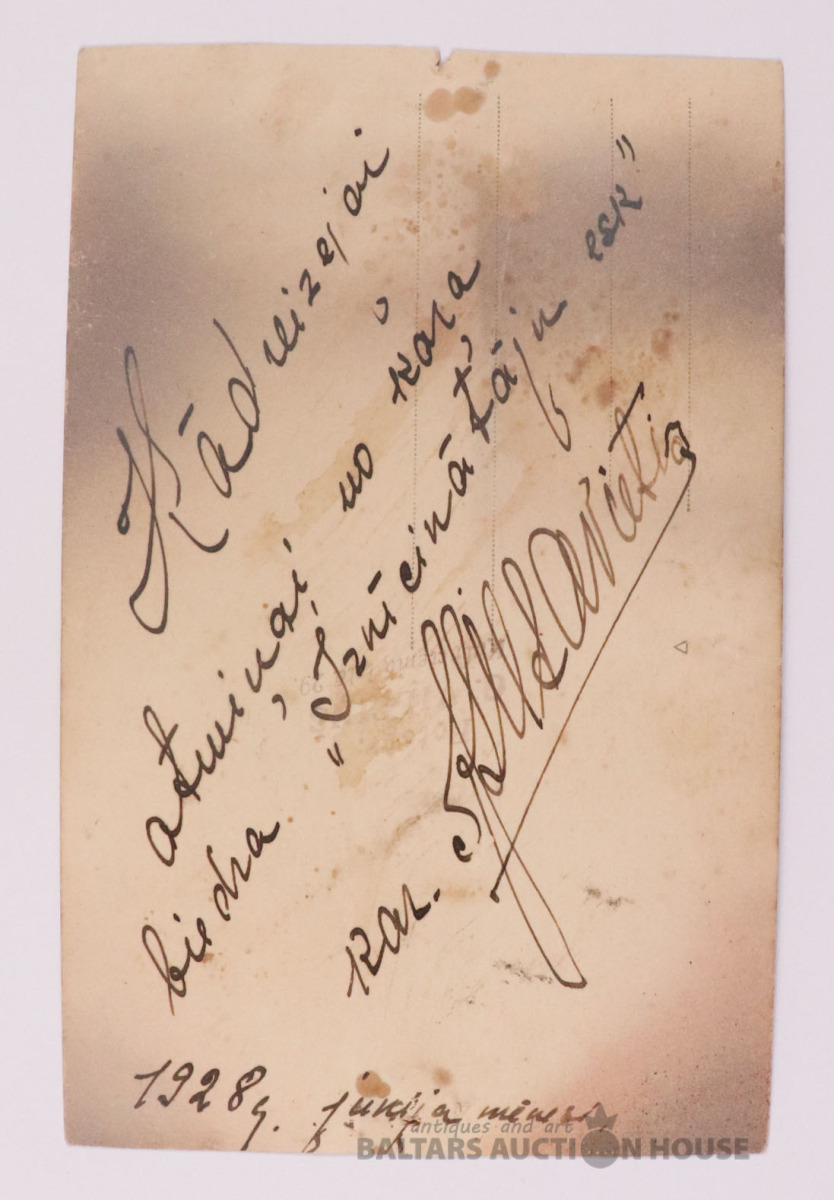 Kādreizejai
atmiņai no kāra
biedra "Iznīcinātāju esk"
kar.
1928 g. mēnesī
antiques and art
BALTARS AUCTION HOUSE